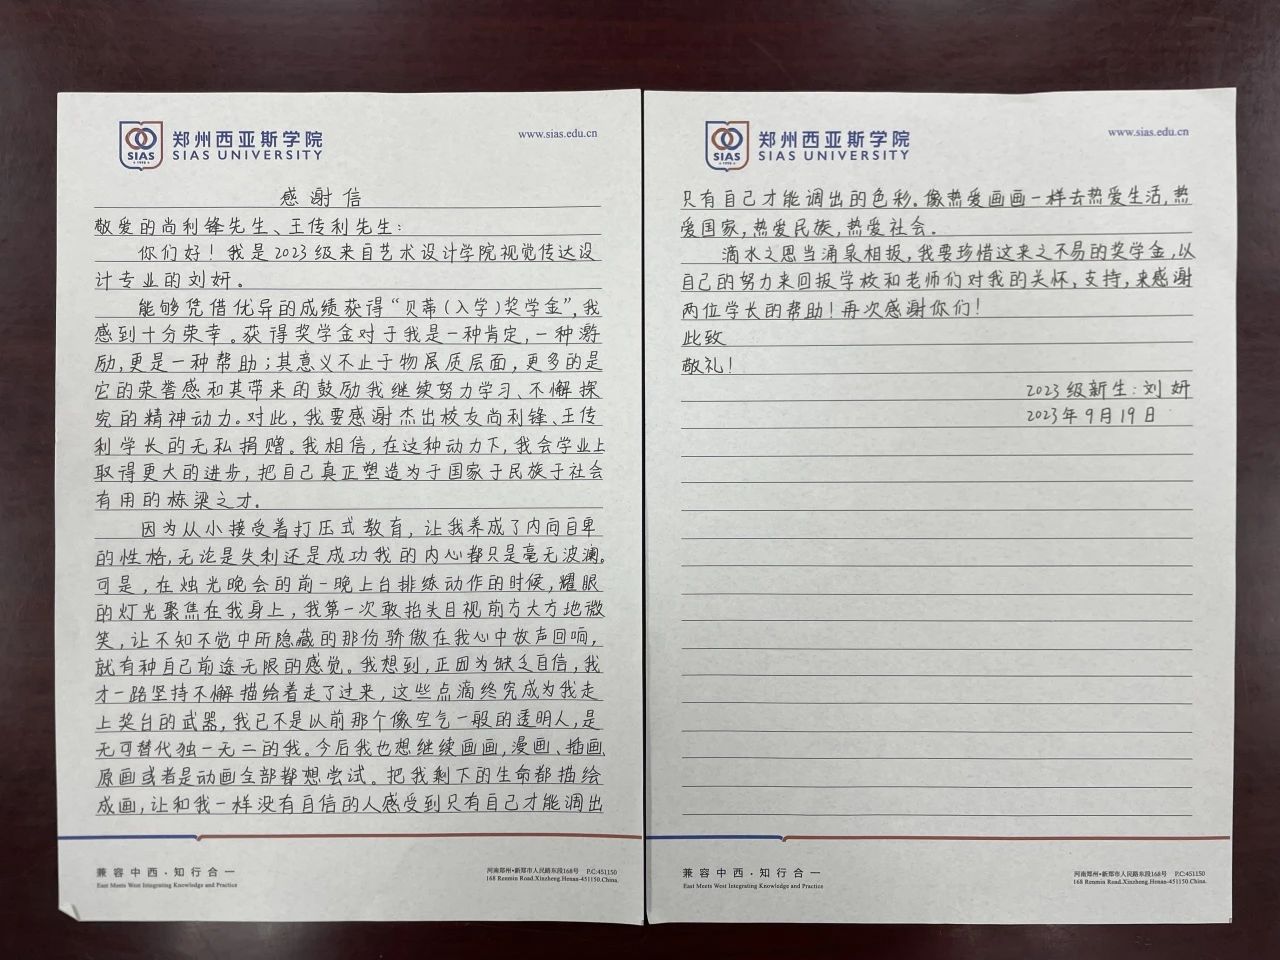 郑州西亚斯学院
SIAS UNIVERSITY
SIAS
1998
www.sias.edu.cn
感谢信
敬爱的尚利锋先生、王传利先生:
你们好!我是2023级来自艺术设计学院视觉传达设
计专业的刘妍。
能够凭借优异的成绩获得“贝蒂(入学)奖学金”,我
感到十分荣幸。获得奖学金对于我是一种肯定,一种激
励,更是一种帮助;其意义不止于物层质层面,更多的是
它的荣誉感和其带来的鼓励我继续努力学习、不懈探
究的精神动力。对此,我要感谢杰出校友尚利锋、王传
利学长的无私捐赠。我相信,在这种动力下,我会学业上
取得更大的进步,把自己真正塑造为于国家于民族于社会
有用的栋梁之才.
因为从小接受着打压式教育,让我养成了内向自卑
的性格,无论是失利还是成功我的内心都只是毫无波澜。
可是,在烛光晚会的前一晚上台排练动作的时候,耀眼
的灯光聚焦在我身上,我第一次敢抬头目视前方大方地微
笑,让不知不觉中所隐藏的那份骄傲在我心中放声回响,
就有种自己前途无限的感觉。我想到,正因为缺乏自信,我
才一路坚持不懈描绘着走了过来,这些点滴终究成为我走
上奖台的武器,我已不是以前那个像空气一般的透明人,是
无可替代独一无二的我。今后我也想继续画画,漫画、插画,
原画或者是动画全部都想尝试。把我剩下的生命都描绘
成画,让和我一样没有自信的人感受到只有自己才能调出
兼容中西·知行合一
East Meets West Integrating Knowledge and Practice
河南郑州·新郑市人民路东段168号 P.C:451150
168 Renmin Road.Xinzheng.Henan-451150.China.
郑州西亚斯学院
SIAS UNIVERSITY
SIAS
1998
www.sias.edu.cn
只有自己才能调出的色彩.像热爱画画一样去热爱生活,热
爱国家,热爱民族,热爱社会.
滴水之恩当涌泉相报,我要珍惜这来之不易的奖学金,以
自己的努力来回报学校和老师们对我的关怀,支持,来感谢
两位学长的帮助!再次感谢你们!
此致
敬礼!
2023级新生:刘妍
2023年9月19日
兼容中西·知行合一
East Meets West Integrating Knowledge and Practice
河南郑州·新郑市人民路东段168号 P.C:451150
168 Renmin Road.Xinzheng.Henan-451150.China.